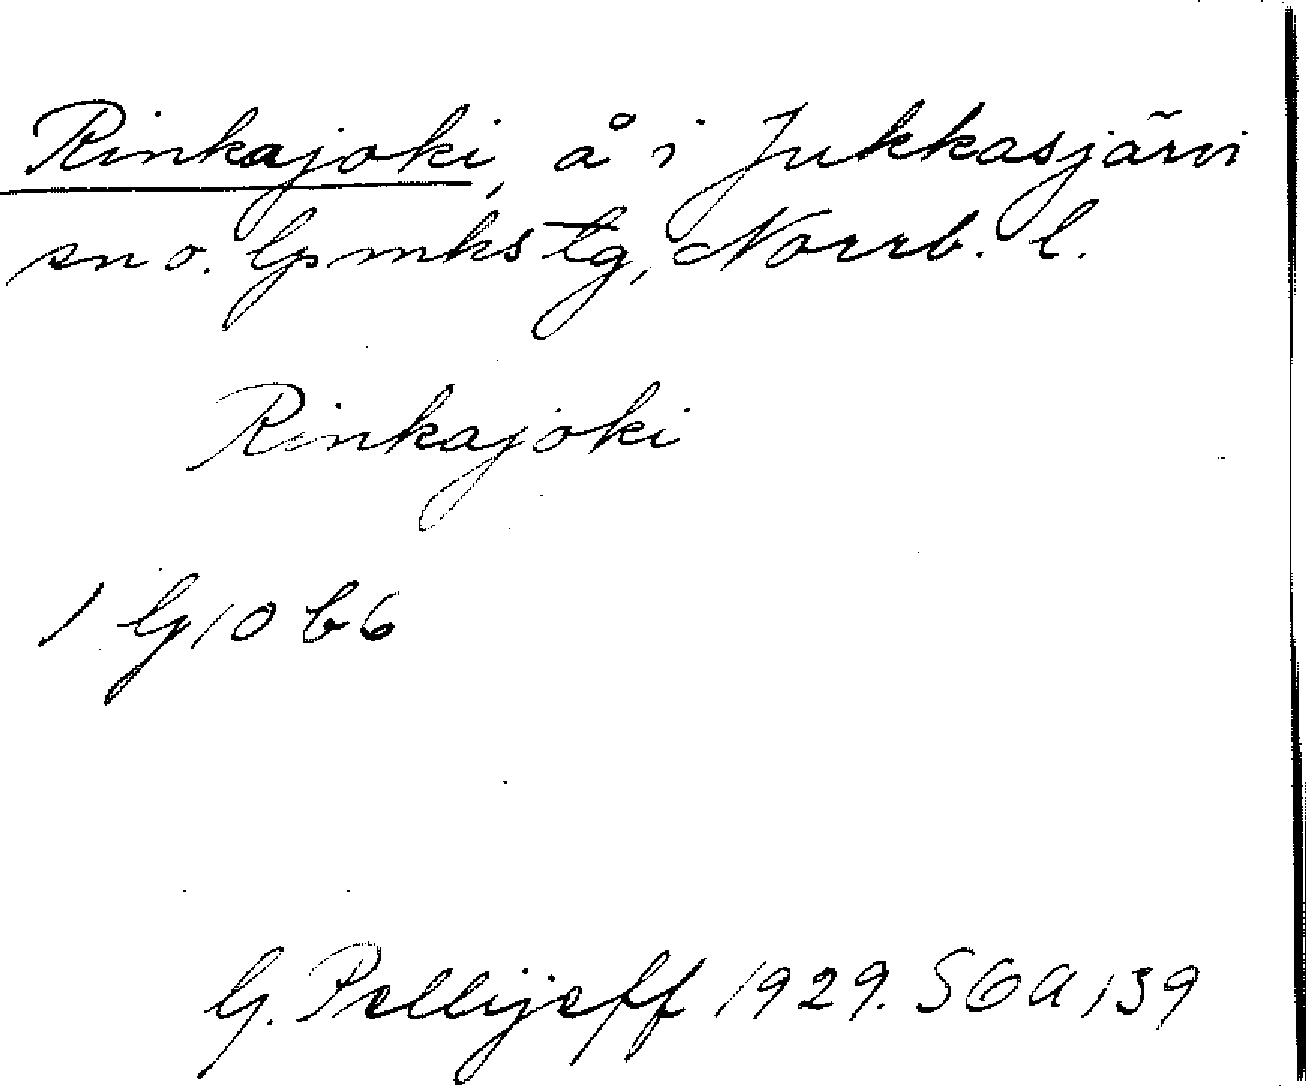 Rinkajoki, å i Jukkasjärvi
sn o. lpmkstg, Norrb. l.
Rinkajoki
1 G 10 b 6
G. Pellijeff 1929. SGA 139